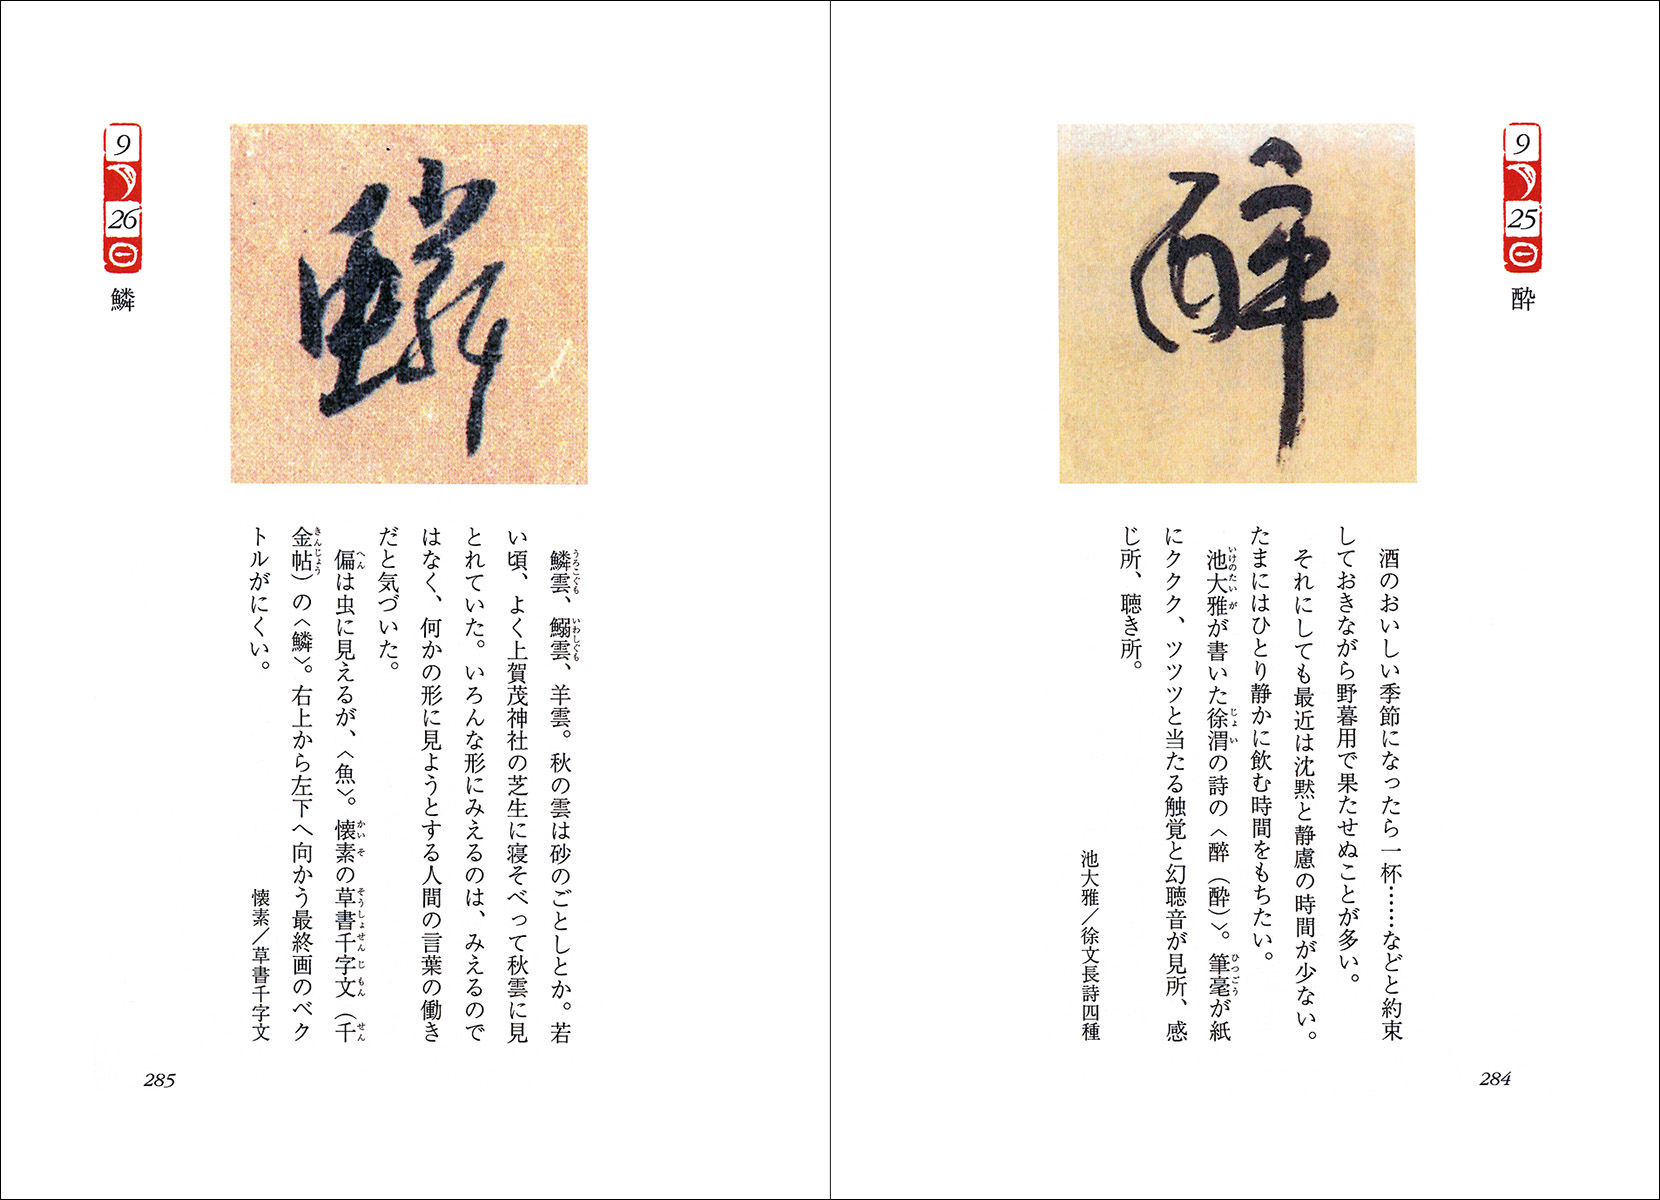 9月25日
酔
醉
酒のおいしい季節になったら一杯……などと約束
しておきながら野暮用で果たせぬことが多い。
それにしても最近は沈黙と静慮の時間が少ない。
たまにはひとり静かに飲む時間をもちたい。
池大雅が書いた徐渭の詩の〈醉(酔)〉。筆毫が紙
にククク、ツツツと当たる触覚と幻聴音が見所、感
じ所、聴き所。
池大雅/徐文長詩四種
284
9月26日
鱗
鱗
鱗雲、鰯雲、羊雲。秋の雲は砂のごとしとか。若
い頃、よく上賀茂神社の芝生に寝そべって秋雲に見
とれていた。いろんな形にみえるのは、みえるので
はなく、何かの形に見ようとする人間の言葉の働き
だと気づいた。
偏は虫に見えるが、〈魚〉。懐素の草書千字文(千
金帖)の〈鱗〉。右上から左下へ向かう最終画のベク
トルがにくい。
懐素/草書千字文
285